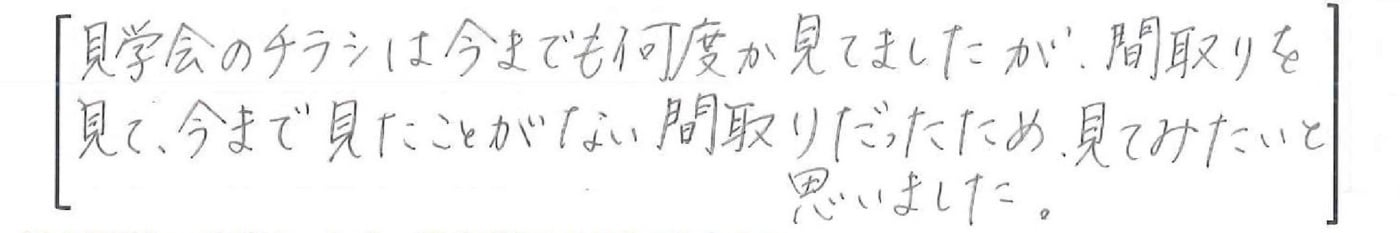 見学会のチラシは今までも何度か見てましたが、間取りを
見て、今まで見たことがない間取りだったため、見てみたいと
思いました。